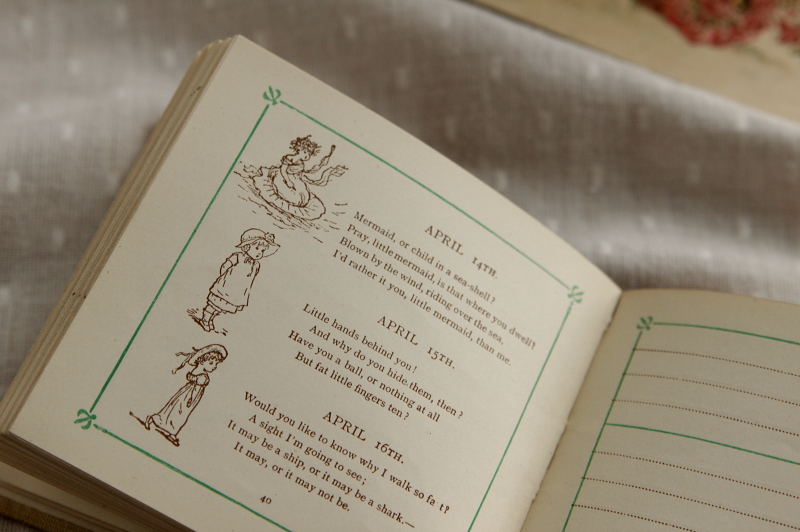 APRIL 14TH.
Mermaid, or child in a sea-shell?
Pray, little mermaid, is that where you dwell?
Blown by the wind, riding over the sea,
I'd rather it you, little mermaid, than me.
APRIL 15TH.
Little hands behind you!
And why do you hide them, then?
Have you a ball, or nothing at all
But fat little fingers ten?
APRIL 16TH.
Would you like to know why I walk so fast?
A sight I'm going to see;
It may be a ship, or it may be a shark.—
It may, or it may not be.
40